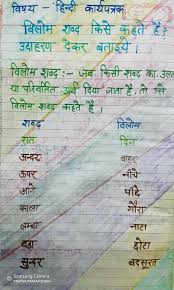 विषय - हिन्दी कार्यपत्रक
विलोम शब्द किसे कहते हैं?
उदाहरण देकर बताइये।
विलोम शब्द :- जब किसी शब्द का उल्टा
या परिवर्तित अर्थ दिया जाता है, तो उसे
विलोम शब्द कहते हैं।
शब्द विलोम
रात दिन
अन्दर बाहर
ऊपर नीचे
आगे पीछे
काला गौरा
लम्बा नाटा
बड़ा छोटा
सुन्दर बदसूरत
Samsung Camera